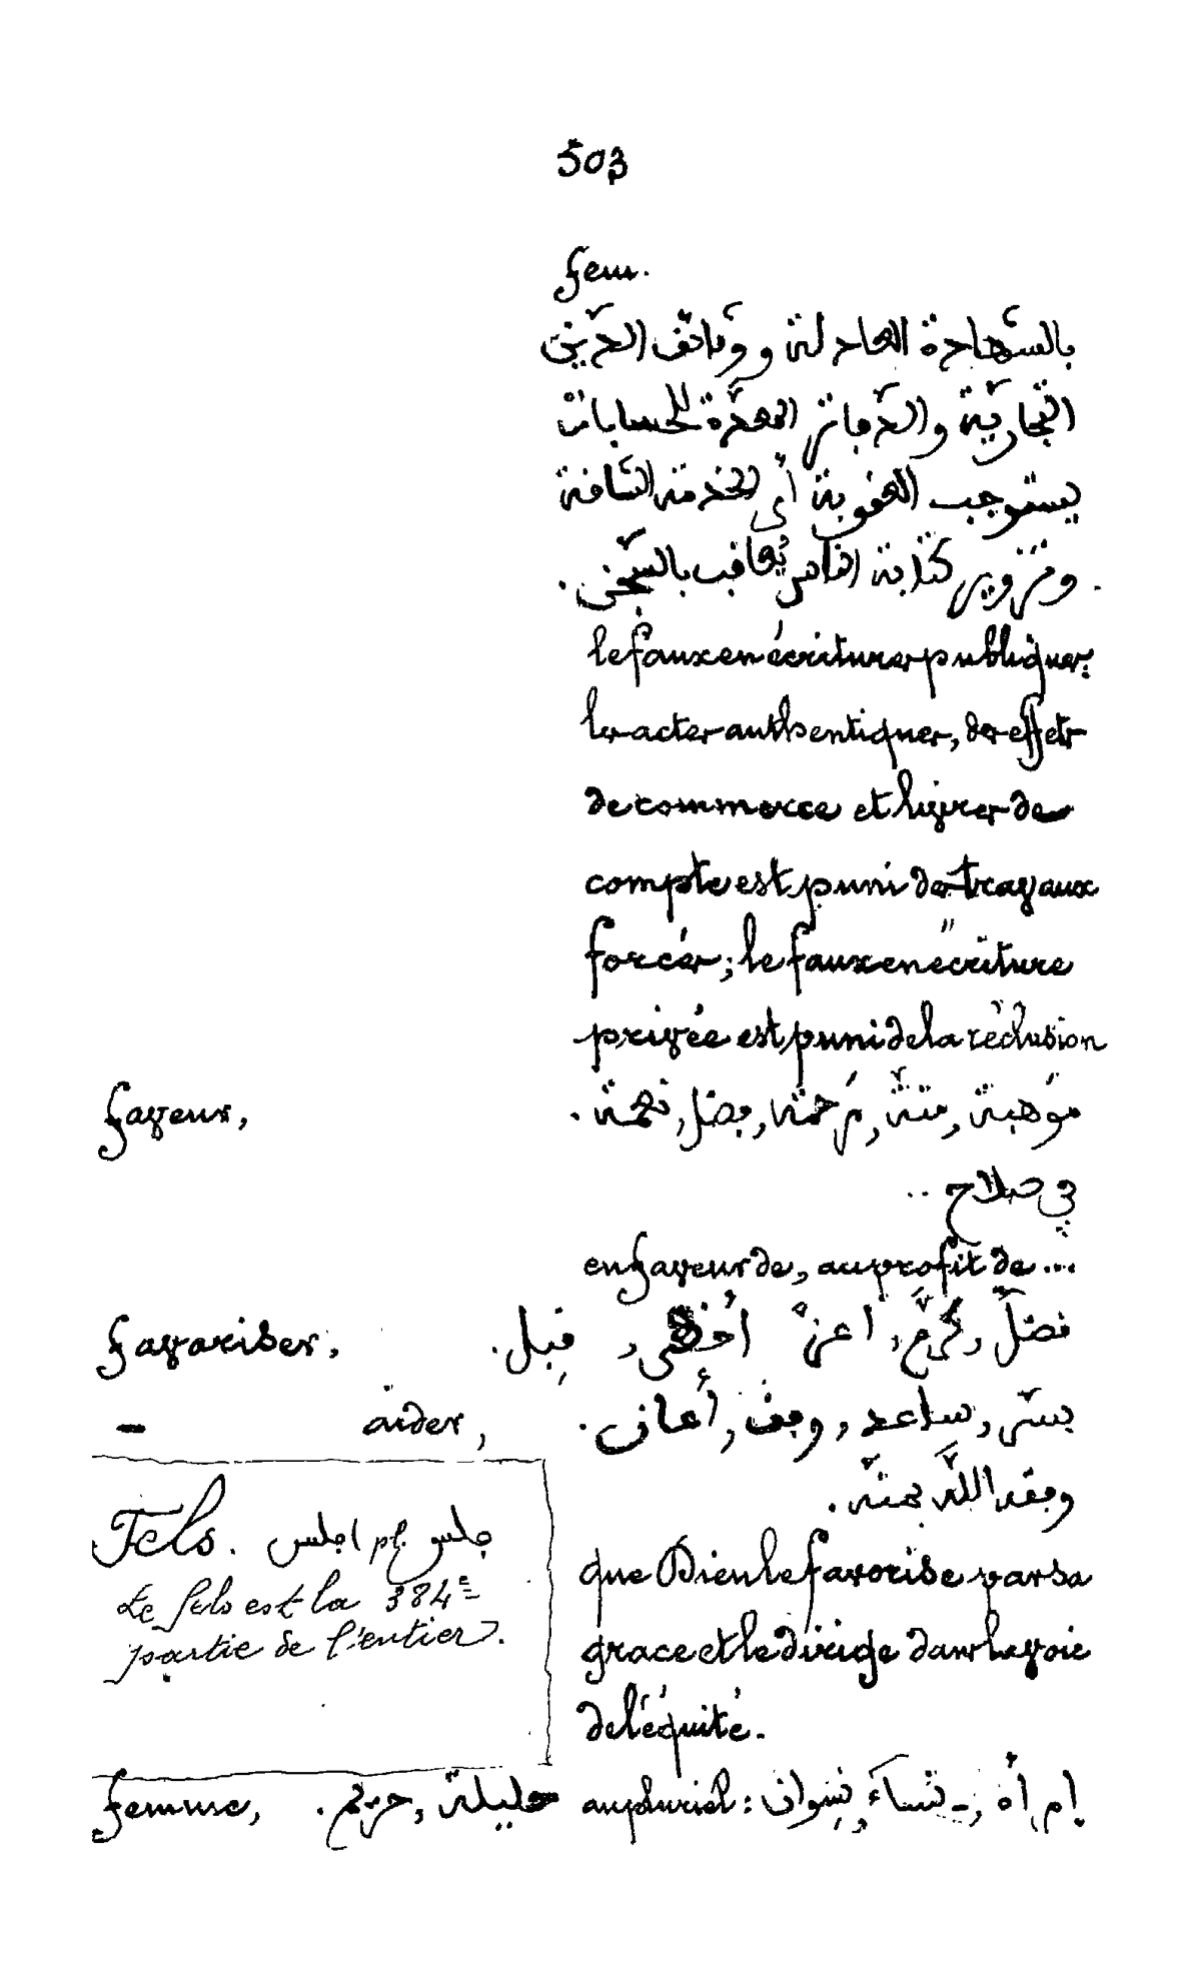 503
fem.
بالشهادة العادلة ووثائق الدّيني
التجاريّة والدّفاتر المعدّة للحسابات
يستوجب العقوبة أي الخدمة الشاقة
وتزوير كتابة الناس يُعاقب بالسّجن.
le faux en écritures publiques:
les actes authentiques, des effets
de commerce et livres de
compte est puni des travaux
forcés; le faux en écriture
privée est puni de la réclusion
faveur, موَهبة, منّة, مَرحمة, فضل, نعمة.
في صلاح..
en faveur de, au profit de ...
favoriser, فضّل, كرّم, اعزّ أحظى, قبل.
- aider, يسّر, ساعد, وفق, أعان.
وفقه اللّه بمنّه.
que Dieu le favorise par sa
grace et le dirige dans la voie
de l'équité.
Fels. فلس pl. افلس
Le fels est la 384e
partie de l'entier.
femme, إمرأة, - au pluriel: نساءَ, نِسوان حليلة, حريم.